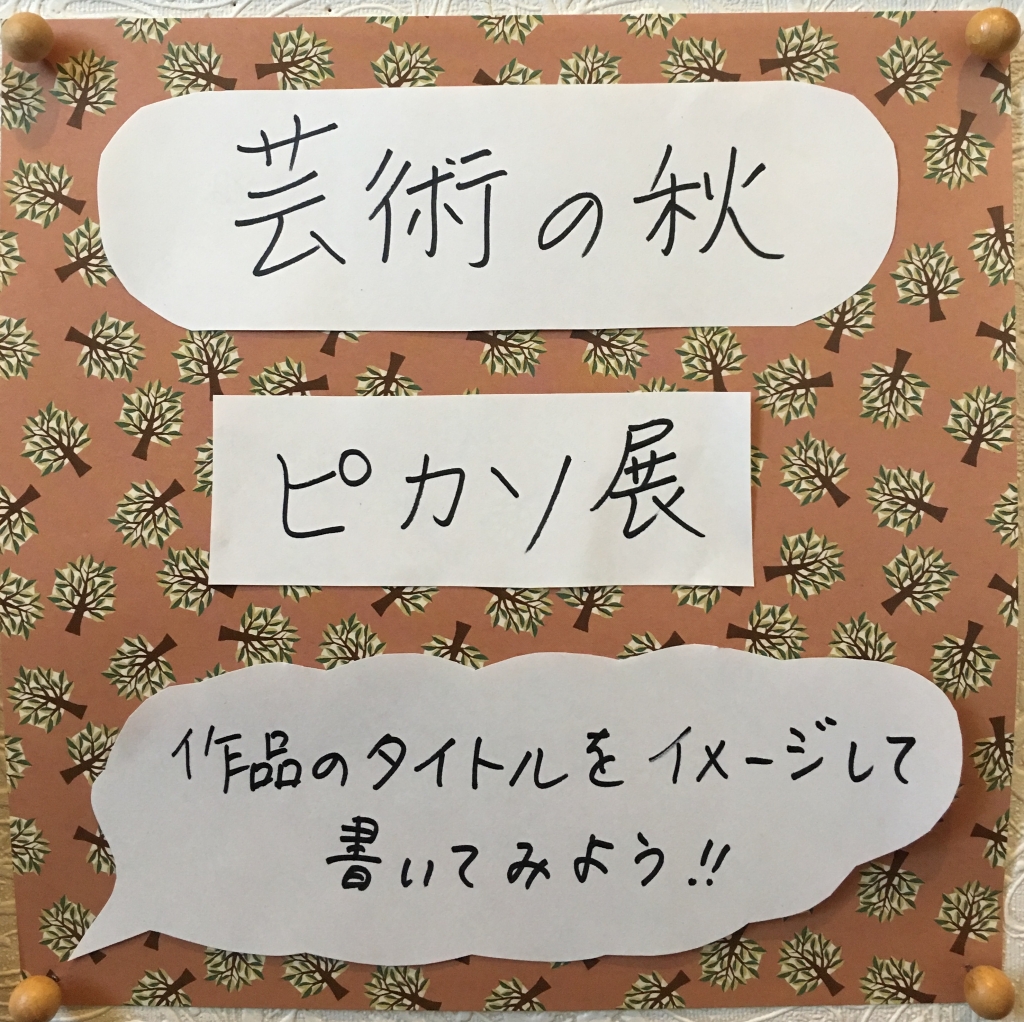 芸術の秋
ピカソ展
作品のタイトルをイメージして
書いてみよう!!